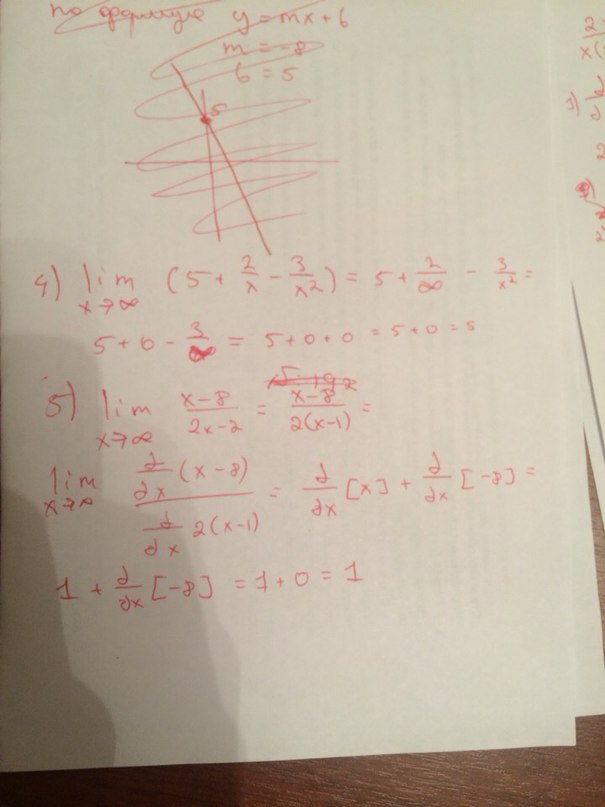 по формуле y = mx + b
m = -8
b = 5
5
4) lim x→∞ (5 + 2/x - 3/x²) = 5 + 2/∞ - 3/x² =
5 + 0 - 3/∞ = 5 + 0 + 0 = 5 + 0 = 5
5) lim x→∞ x-8/2x-2 = x-8/2(x-1) =
lim x→∞ d/dx (x-8) / d/dx 2(x-1) = d/dx [x] + d/dx [-8] =
1 + d/dx [-8] = 1 + 0 = 1
2
x(